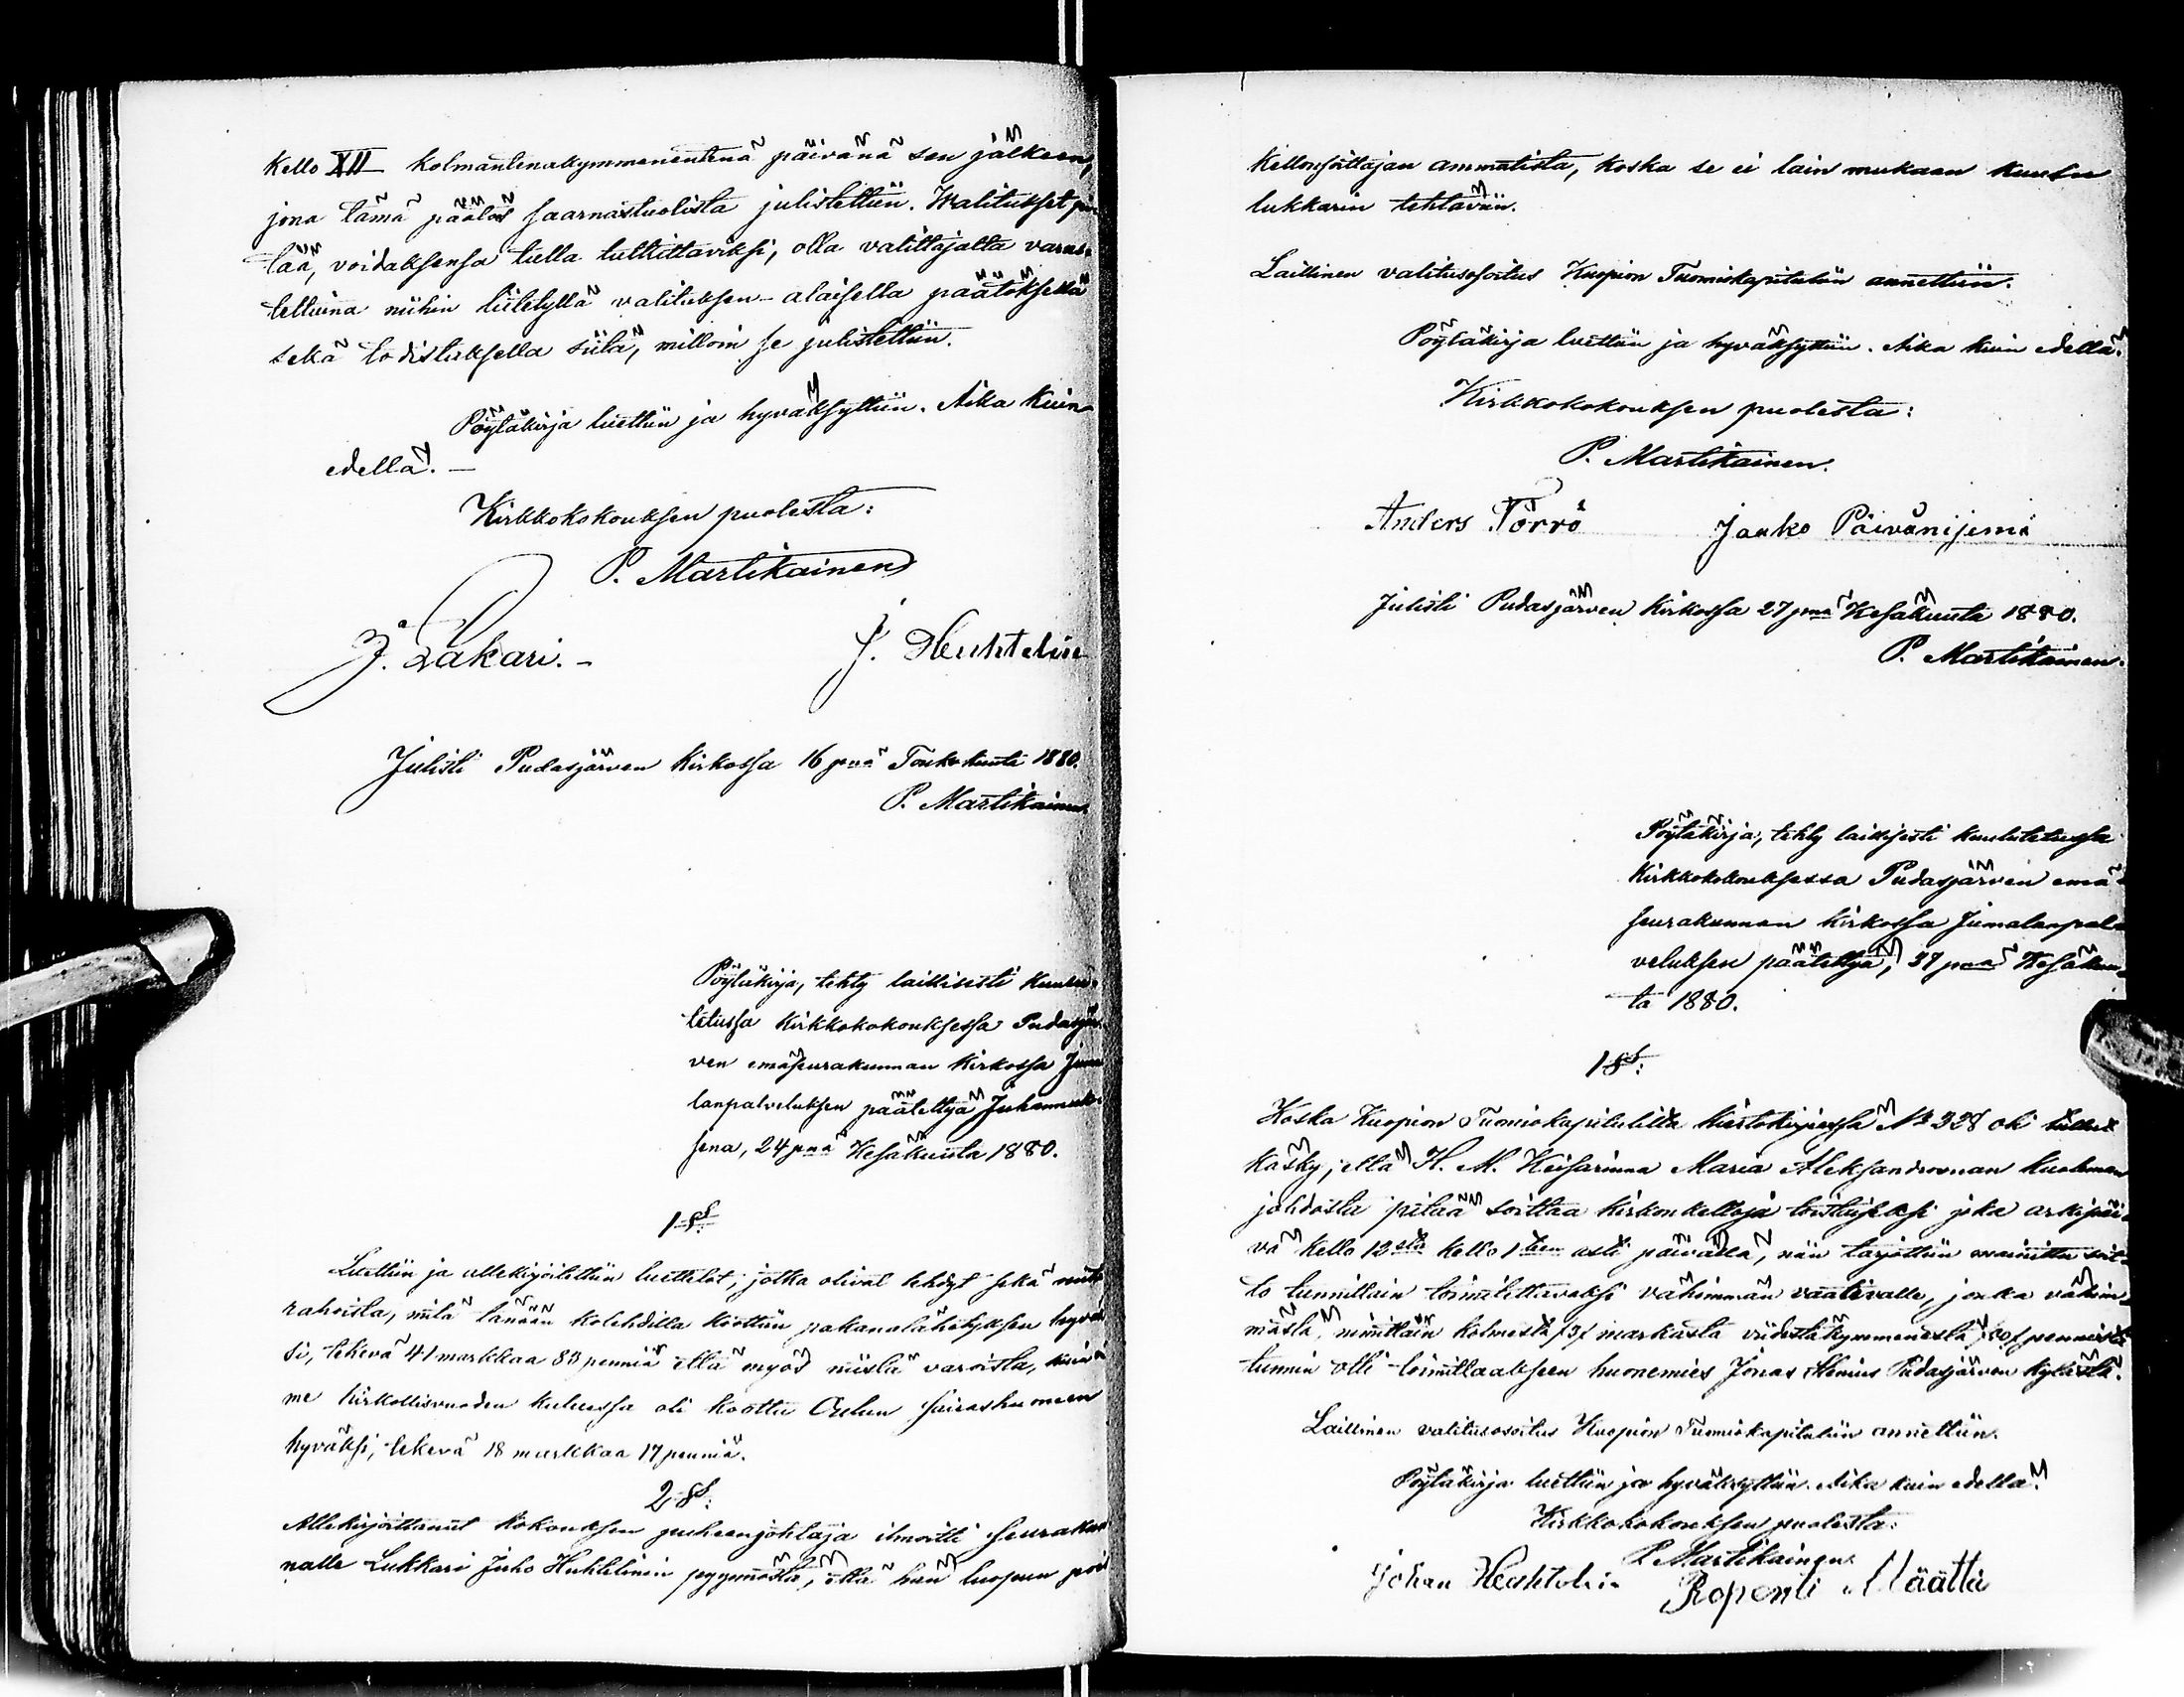 Kello XII kolmantenakymmenentenä päivänä sen jälkeen,
jona tämä päätös saarnastuolista julistettiin. Walitukset pi-
tää, voidaksensa tulla tutkittaviksi, olla valittajalta varus-
tettuina niihin liitetyllä valituksen-alaisella päätöksellä
sekä todistuksella siitä, milloin se julistettiin.
Pöytäkirja luettiin ja hyväksyttiin. Aika kuin
edellä. —
Kirkkokokouksen puolesta:
P. Martikainen
J. Lakari. – J. Huhtelin
Julisti Pudasjärven Kirkossa 16 pnä Toukokuuta 1880.
P. Martikainen
Pöytäkirja, tehty laillisesti kuulu-
tetussa Kirkkokokouksessa Pudasjär-
ven emäseurakunnan Kirkossa Juma
lanpalveluksen päätettyä Juhannuk-
sena, 24 pnä Kesäkuuta 1880.
1 §.
Luettiin ja allekirjoitettiin luettelot, jotka olivat tehdyt sekä niistä
rahoista, mitä tänään kolehdilla koottiin pakanalähetyksen hyväk
si, tekevä 41 markkaa 83 penniä että myös niistä varoista, kuin
me kirkollisvuoden kuluessa oli koottu Oulun sairashuoneen
hyväksi, tekevä 18 markkaa 17 penniä.
2 §.
Allekirjoittanut kokouksen puheenjohtaja ilmoitti seurakun
nalle Lukkari Juho Huhtelinin pyynnöstä, että hän luopuu pois
Kellonsoittajan ammatista, koska se ei lain mukaan kuulu
lukkarin tehtäviin.
Laillinen valitusosoitus Kuopion Tuomiokapituliin annettiin.
Pöytäkirja luettiin ja hyväksyttiin. Aika kuin edellä.
Kirkkokokouksen puolesta:
P. Martikainen.
Anders Törrö Jaako Päivänijemi
Julisti Pudasjärven Kirkossa 27 pnä Kesäkuuta 1880.
P. Martikainen.
Pöytäkirja, tehty laillisesti kuulutetussa
Kirkkokokouksessa Pudasjärven emä-
seurakunnan Kirkossa Jumalanpal-
veluksen päätettyä, 27 pnä Kesäkuu-
ta 1880.
1 §.
Koska Kuopion Tuomiokapitulilta kiertokirjeessä № 328 oli tullut
käsky, että H. M. Keisarinna Maria Aleksandrownan kuoleman
johdosta pitää soittaa kirkonkelloja toistaiseksi joka arkipäi-
vä Kello 12sta Kello 1teen asti päivällä, niin tarjottiin mainittu soit-
to tunnittain toimitettavaksi vähimmän vaativalle, jonka vähim-
mästä, nimittäin kolmesta /3/ markasta viidestäkymmenestä /50/ pennistä
tunnin otti toimittaakseen huonemies Jonas Stenius Pudasjärven kylästä.
Laillinen valitusosoitus Kuopion Tuomiokapituliin annettiin.
Pöytäkirja luettiin ja hyväksyttiin. Aika kuin edellä.
Kirkkokokouksen puolesta:
P. Martikainen.
Johan Heuhtelin Roponti Määttä